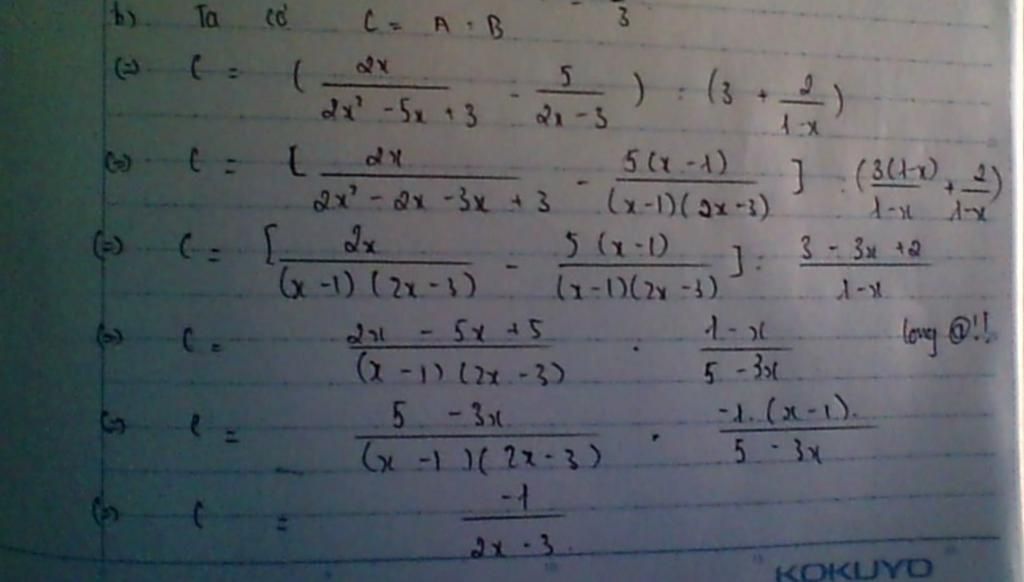 3
b) Ta có C = A : B
(=) C = ( 2x / 2x² - 5x + 3 - 5 / 2x - 3 ) : (3 + 2 / 1-x )
(=) C = [ 2x / 2x² - 2x - 3x + 3 - 5(x-1) / (x-1)(2x-3) ] : ( 3(1-x) / 1-x + 2 / 1-x )
(=) C = [ 2x / (x-1)(2x-3) - 5(x-1) / (x-1)(2x-3) ] : 3 - 3x + 2 / 1-x
(=) C = 2x - 5x + 5 / (x-1)(2x-3) . 1-x / 5-3x long @!!
(=) C = 5 - 3x / (x-1)(2x-3) . -1.(x-1). / 5-3x
(=) C = -1 / 2x-3.
KOKUYO